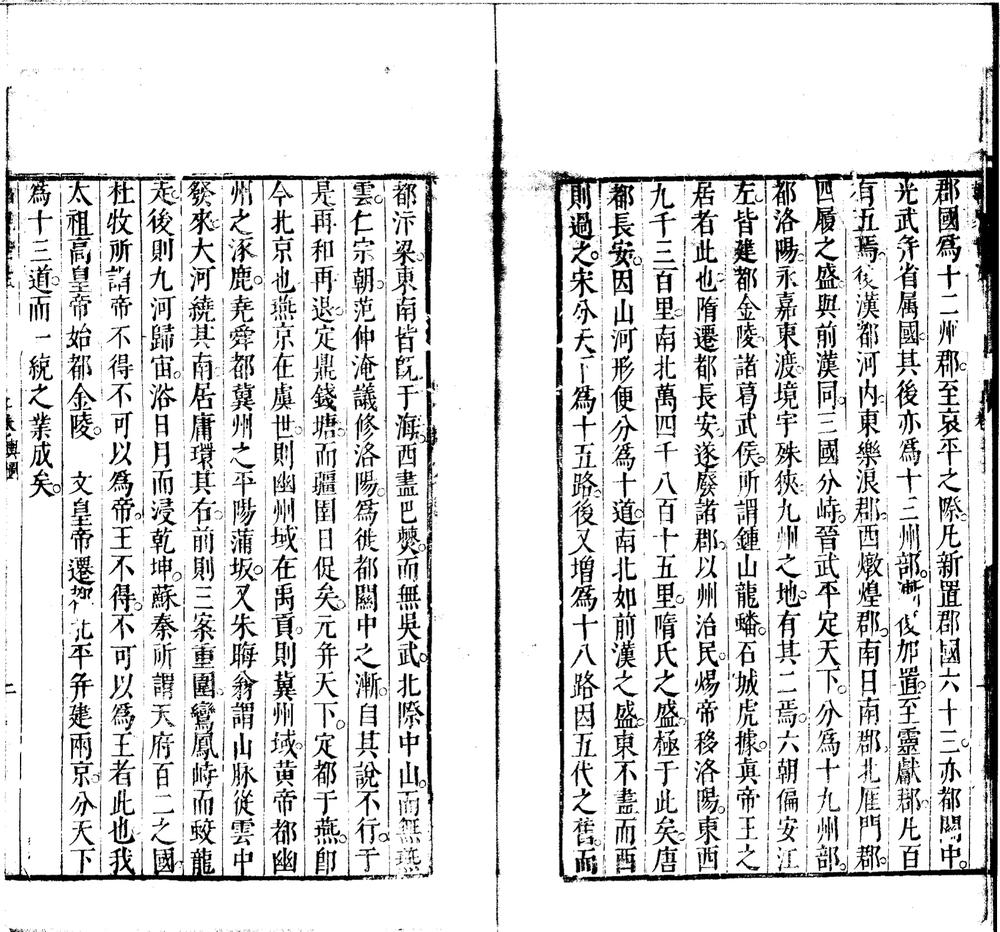 郡國爲十二州郡。至哀平之際。凡新置郡國六十三。亦都關中。
光武并省属國。其後亦爲十三州部。漸復加置。至靈獻郡。凡百
有五焉。後漢都河内。東樂浪郡。西燉煌郡。南日南郡。北雁門郡。
四履之盛。與前漢同。三國分峙。晉武平定天下。分爲十九州部。
都洛陽。永嘉東渡。境宇殊狹。九州之地。有其二焉。六朝偏安江
左。皆建都金陵。諸葛武侯。所謂鍾山龍蟠。石城虎據。眞帝王之
居者此也。隋遷都長安。遂廢諸郡。以州治民。煬帝移洛陽。東西
九千三百里。南北萬四千八百十五里。隋氏之盛。極于此矣。唐
都長安。因山河形便。分爲十道。南北如前漢之盛。東不盡而西
則過之。宋分天下爲十五路。後又增爲十八路。因五代之舊。而
都汴梁。東南皆旣于海。西盡巴僰。而無吳武。北際中山。而無燕
雲。仁宗朝。范仲淹議修洛陽。爲徙都關中之漸。自其說不行。于
是再和再退。定鼎錢塘。而疆圉日促矣。元并天下。定都于燕。卽
今北京也。燕京在虞世。則幽州域。在禹貢。則冀州域。黄帝都幽
州之涿鹿。堯舜都冀州之平陽蒲坂。又朱晦翁謂山脉從雲中
發來。大河繞其南。居庸環其右。前則三案重圍。鸞鳳峙而蛟龍
走。後則九河歸宙。浴日月而浸乾坤。蘇秦所謂天府百二之國。
杜牧所謂帝不得不可以爲帝。王不得不可以爲王者此也。我
太祖高皇帝始都金陵。 文皇帝遷都北平。并建兩京。分天下
爲十三道。而一統之業成矣。